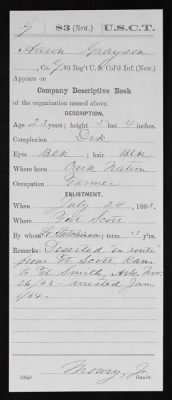 G 83 (New.) U.S.C.T.
Aaron Grayson
, Co. G, 83 Reg't U. S. Col'd Inf. (New.)
Appears on
Company Descriptive Book
of the organization named above.
DESCRIPTION.
Age 23 years; height 5 feet 4 inches.
Complexion Drk
Eyes Blk ; hair Blk
Where born Creek Nation
Occupation Farmer
ENLISTMENT.
When July 24, 1863.
Where Fort Scott
By whom Lt. ; term 3 y'rs.
Remarks: Deserted "en route"
from Ft Scott Kans
to Ft Smith, Ark, Nov.
26/63 - arrested Jan
1/64.
Mowry, Jr
Copyist.